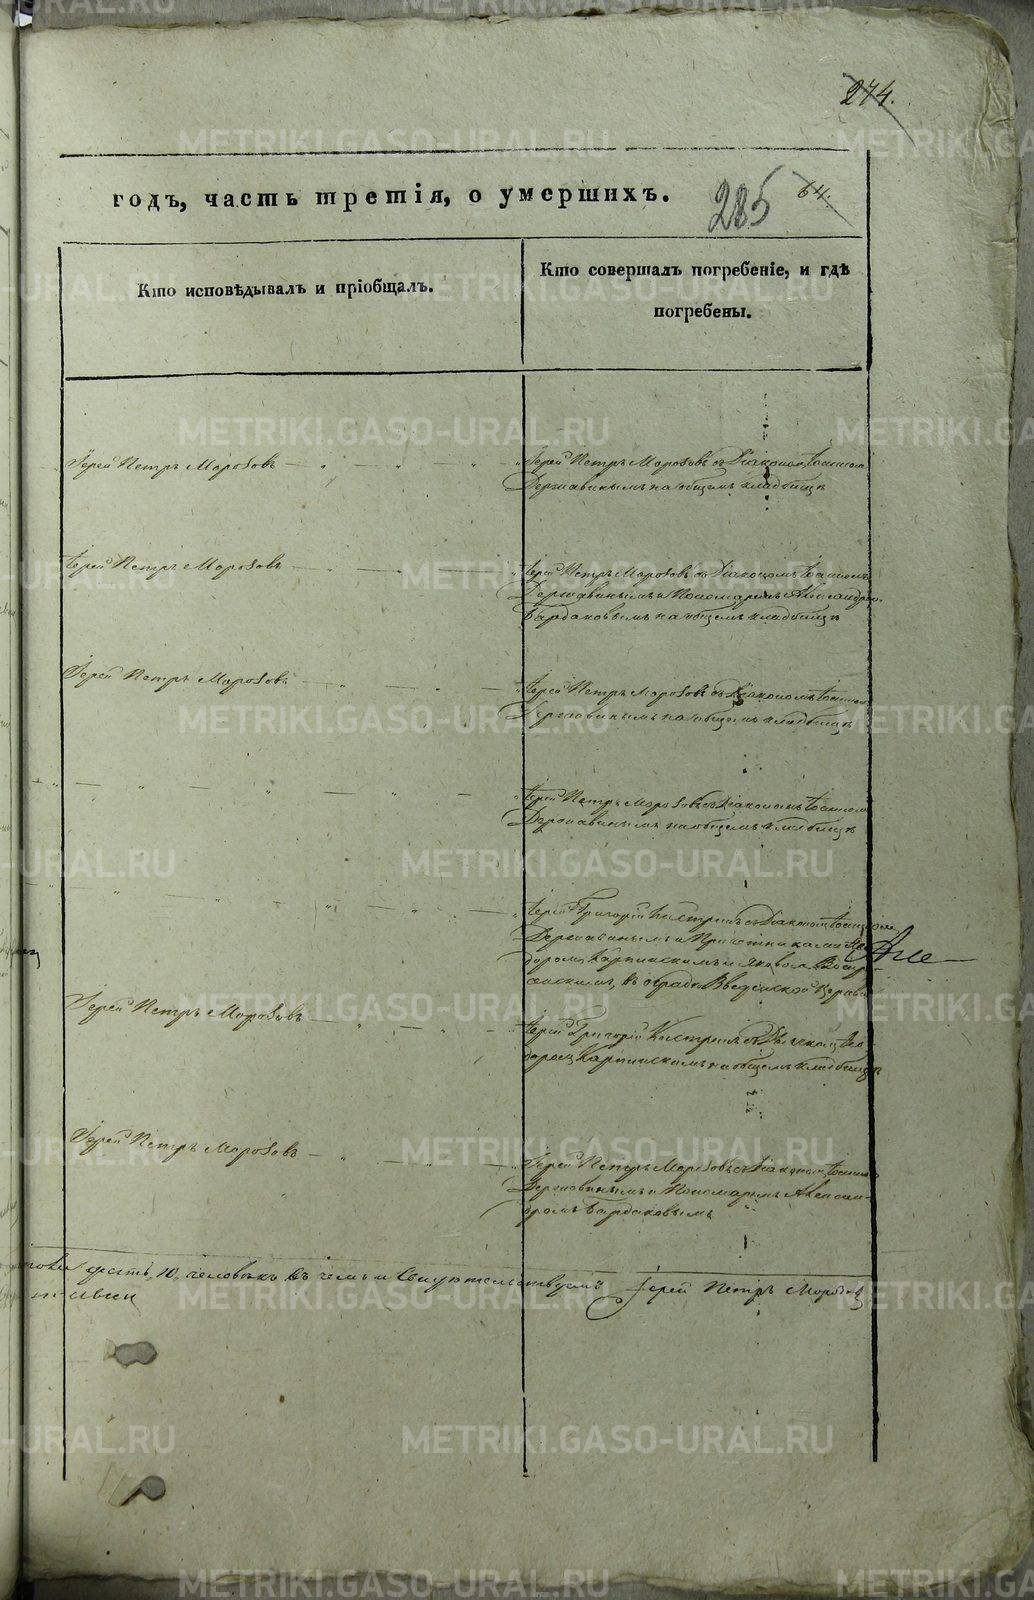 274.
годъ, часть третія, о умершихъ.
285
64.
Кто исповѣдывалъ и пріобщалъ.
Кто совершалъ погребеніе, и гдѣ
погребены.
Іерей Петръ Морозовъ
Іерей Петръ Морозовъ съ Діакономъ Іоанномъ
Державинымъ на общемъ кладбищѣ
Іерей Петръ Морозовъ
Іерей Петръ Морозовъ съ Діакономъ Іоанномъ
Державинымъ и Пономаремъ Александромъ
Бардаковымъ на общемъ кладбищѣ
Іерей Петръ Морозовъ
Іерей Петръ Морозовъ съ Діакономъ Іоанномъ
Державинымъ на общемъ кладбищѣ
Іерей Петръ Морозовъ съ Діакономъ Іоанномъ
Державинымъ на общемъ кладбищѣ
Іерей Григорій съ Діакономъ Іоанномъ
Державинымъ и Причетниками Ѳео
доромъ Карпинскимъ и Яковомъ
въ оградѣ Введенской Церкви
Іерей Петръ Морозовъ
Іерей Григорій съ Ѳео
доромъ Карпинскимъ на общемъ кладбищѣ
Іерей Петръ Морозовъ
Іерей Петръ Морозовъ съ Діакономъ Іоанномъ
Державинымъ и Пономаремъ Алексан-
дромъ Бардаковымъ
10 человѣкъ въ чемъ и свидѣтельствуемъ
Іерей Петръ Морозовъ
METRIKI.GASO-URAL.RU